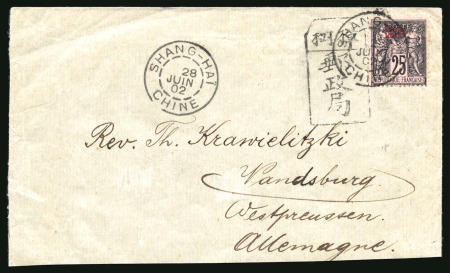 SHANG-HAI
28
JUIN
02
CHINE
政
局
25
Rev. Th. Krawielitzki
Vandsburg
Westpreussen.
Allemagne.